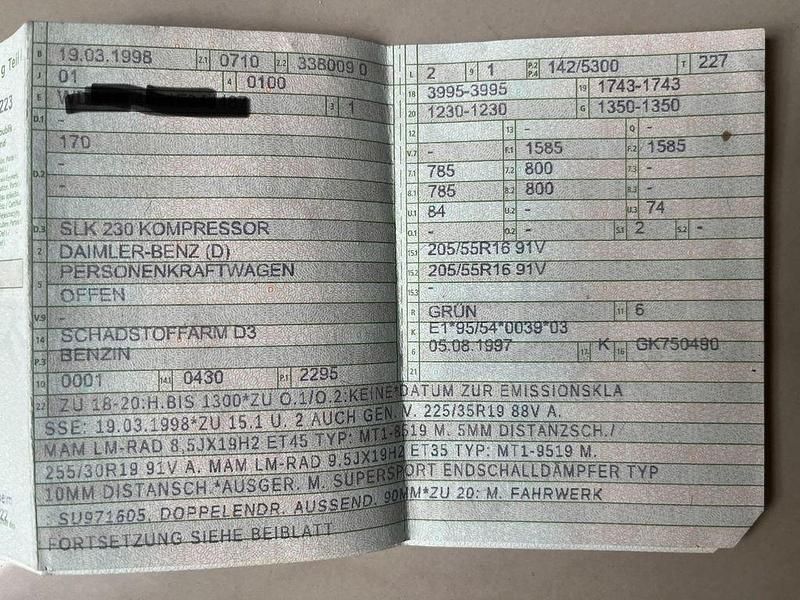 g Teil I
B 19.03.1998 2.1 0710 2.2 338009 0
J 01 4 0100
E 3 1
D.1 -
170
D.2 -
-
D.3 SLK 230 KOMPRESSOR
2 DAIMLER-BENZ (D)
5 PERSONENKRAFTWAGEN
OFFEN
V.9 -
14 SCHADSTOFFARM D3
P.3 BENZIN
10 0001 14.1 0430 P.1 2295
L 2 9 1 P.2 P.4 142/5300 T 227
18 3995-3995 19 1743-1743
20 1230-1230 G 1350-1350
12 - 13 - Q -
V.7 - F.1 1585 F.2 1585
7.1 785 7.2 800 7.3 -
8.1 785 8.2 800 8.3 -
U.1 84 U.2 - U.3 74
O.1 - O.2 - S.1 2 S.2 -
15.1 205/55R16 91V
15.2 205/55R16 91V
15.3 -
R GRÜN 11 6
K E1*95/54*0039*03
6 05.08.1997 17 K 16 GK750490
21
22 ZU 18-20:H.BIS 1300*ZU O.1/O.2:KEINE*DATUM ZUR EMISSIONSKLA
SSE: 19.03.1998*ZU 15.1 U. 2 AUCH GEN. V. 225/35R19 88V A.
MAM LM-RAD 8,5JX19H2 ET45 TYP: MT1-8519 M. 5MM DISTANZSCH./
255/30R19 91V A. MAM LM-RAD 9.5JX19H2 ET35 TYP: MT1-9519 M.
10MM DISTANSCH.*AUSGER. M. SUPERSPORT ENDSCHALLDÄMPFER TYP
: SU971605, DOPPELENDR. AUSSEND. 90MM*ZU 20: M. FAHRWERK
FORTSETZUNG SIEHE BEIBLATT